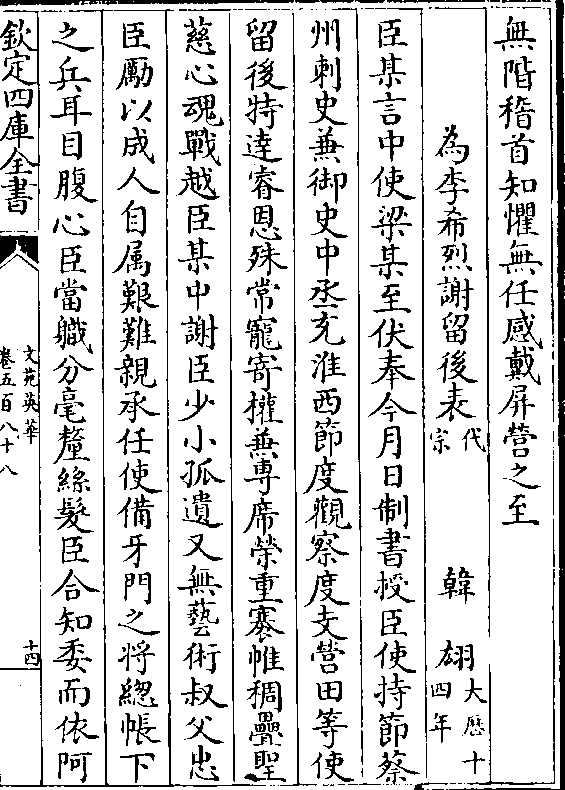 無階稽首知懼無任感戴屏營之至
為李希烈謝留後表代宗 韓翃大厯十四年
臣某言中使梁某至伏奉今月日制書授臣使持節蔡
州刺史兼御史中丞充淮西節度觀察度支營田等使
留後特達睿恩殊常寵寄權兼專席榮重褰帷稠疊聖
慈心魂戰越臣某中謝臣少小孤遺又無藝術叔父忠
臣勵以成人自属艱難親承任使備牙門之將緫帳下
之兵耳目腹心臣當職分毫釐絲髮臣合知委而依阿
欽定四庫全書
文苑英華
卷五百八十八
十四